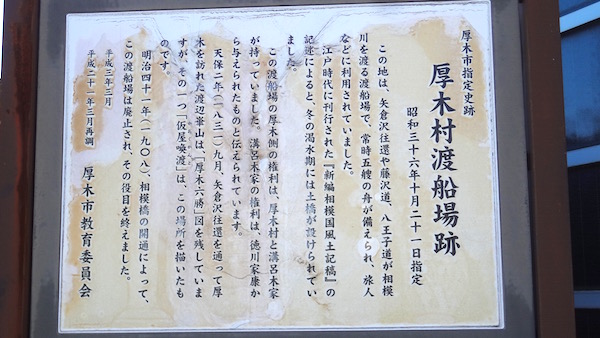 厚木市指定史跡
厚木村渡船場跡
昭和三十六年十月二十一日指定
この地は、矢倉沢往還や藤沢道、八王子道が相模
川を渡る渡船場で、常時五艘の舟が備えられ、旅人
などに利用されていました。
江戸時代に刊行された『新編相模国風土記稿』の
記述によると、冬の渇水期には土橋が設けられてい
ました。
この渡船場の厚木側の権利は、厚木村と溝呂木家
が持っていました。溝呂木家の権利は、徳川家康か
ら与えられたものと伝えられています。
天保二年（一八三一）九月、矢倉沢往還を通って厚
木を訪れた渡辺崋山は、「厚木六勝」図を残していま
すが、その一つ「仮屋喚渡」は、この場所を描いたも
のです。
明治四十一年（一九〇八）、相模橋の開通によって、
この渡船場は廃止され、その役目を終えました。
平成三年三月
平成二十一年三月再調
厚木市教育委員会